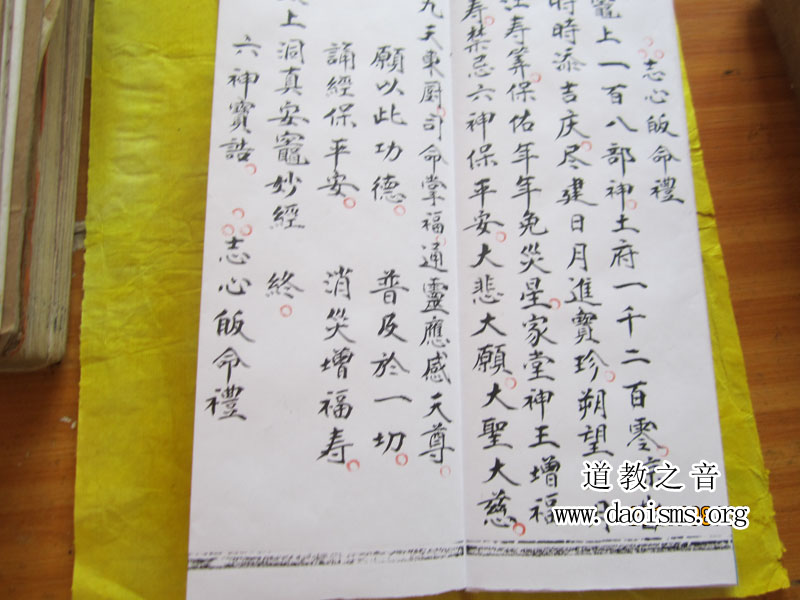 志心皈命禮
竈上一百八部神土府一千二百零
時時添吉庆尽建日月進寶珍朔望
寿筭保佑年年免災星家堂神王增福
寿禁忌六神保平安大悲大願大聖大慈
九天東厨司命掌福通靈應感天尊
願以此功德 普及於一切
誦經保平安 消災增福寿
上洞真安竈妙經 終
六神寶誥 志心皈命禮
道教之音
www.daoisms.org